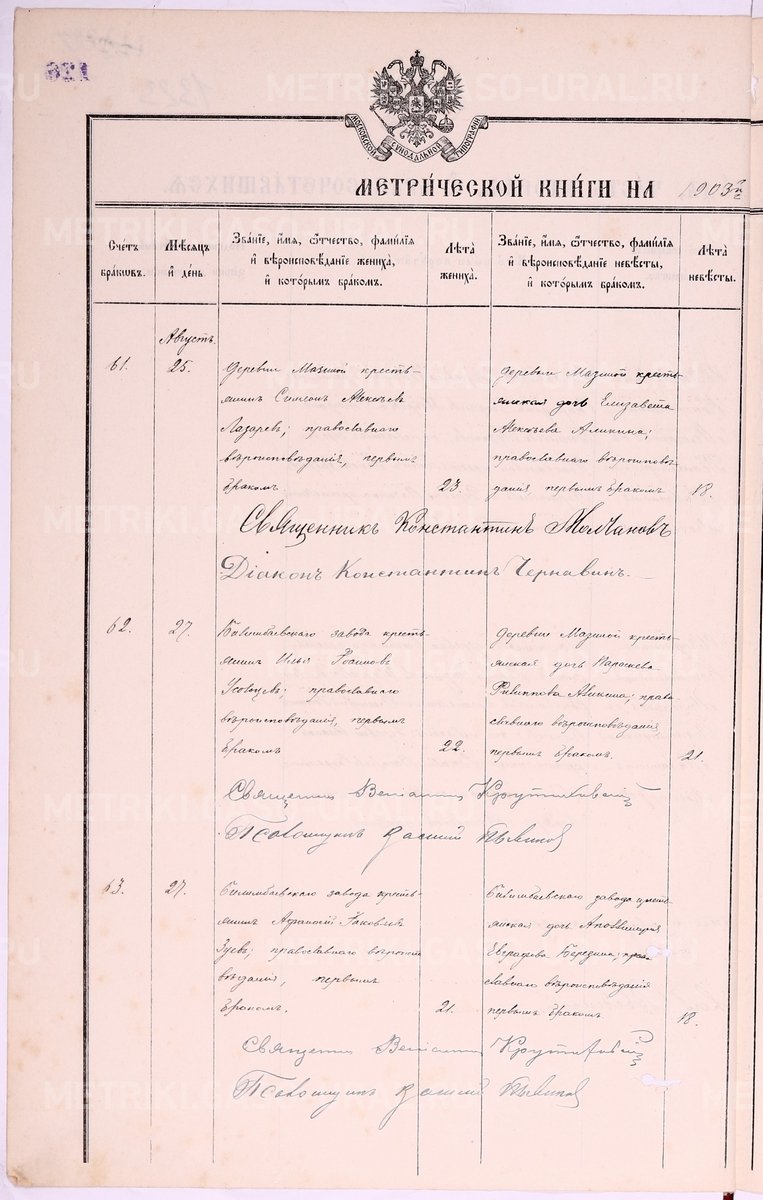 128
МОСКОВСКОЙ СѴНОДАЛЬНОЙ ТИПОГРАФІИ
МЕТРИ́ЧЕСКОЙ КНИ́ГИ НА 1903 г.
Сче́тъ бра́кѡвъ.
Мѣ́сяцъ и де́нь.
Зва́нїе, и́мя, ѻ҆́тчество, фами́лїя и вѣроисповѣ́данїе жениха̀, и кото́рымъ бра́комъ.
Лѣ́та жениха̀.
Зва́нїе, и́мя, ѻ҆́тчество, фами́лїя и вѣроисповѣ́данїе невѣ́сты, и кото́рымъ бра́комъ.
Лѣ́та невѣ́сты.
Августъ.
61. 25.
Деревни Мазиной кресть-
янинъ Симеонъ Алексѣевъ
Лазаревъ; православнаго
вѣроисповѣданія, первымъ
бракомъ. 23.
Деревни Мазиной кресть-
янская дочь Елизавета
Алексѣева Аликина;
православнаго вѣроисповѣ-
данія первымъ бракомъ 18.
Священникъ Константинъ Молчановъ
Діаконъ Константинъ Чернавинъ.
62. 27.
Билимбаевскаго завода кресть-
янинъ Илья
православнаго
вѣроисповѣданія, первымъ
бракомъ 22.
Деревни Мазиной кресть-
янская дочь Параскева
Филиппова Аликина; право-
славнаго вѣроисповѣданія,
первымъ бракомъ. 21.
Священникъ Веніаминъ
Псаломщикъ Василій
63. 27.
Билимбаевскаго завода кресть-
янинъ Афанасій Яковлевъ
Зуевъ; православнаго вѣроиспо-
вѣданія, первымъ
бракомъ. 21.
Билимбаевскаго завода кресть-
янская дочь Аполлинарія
Евграфова Бередина; право-
славнаго вѣроисповѣданія
первымъ бракомъ 18.
Священникъ Веніаминъ
Псаломщикъ Василій
METRIKI.GASO-URAL.RU